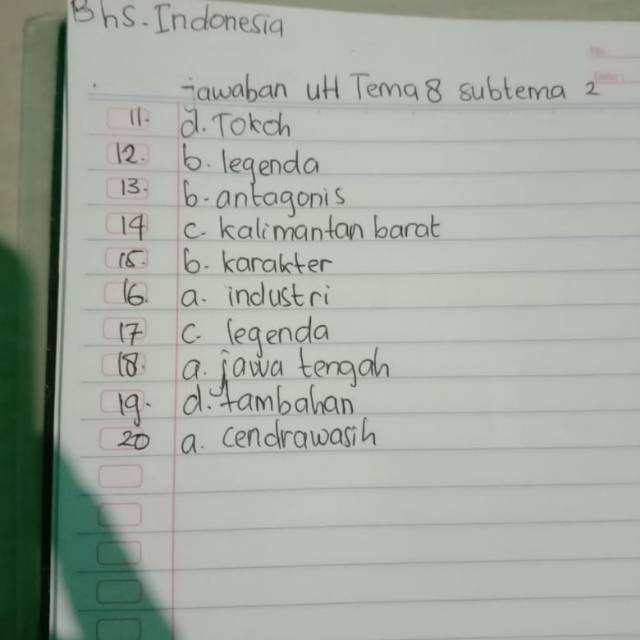 Bhs. Indonesia
jawaban uH Tema 8 subtema 2
11. d. Tokoh
12. b. legenda
13. b. antagonis
14 c. kalimantan barat
15. b. karakter
16. a. industri
17 c. legenda
18. a. jawa tengah
19. d. tambahan
20 a. cendrawasih